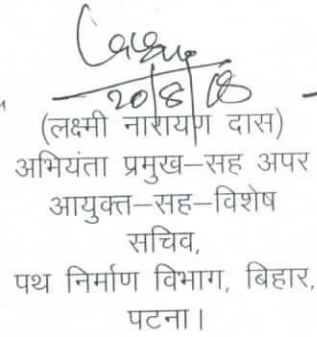 20/8/08
(लक्ष्मी नारायण दास)
अभियंता प्रमुख–सह अपर
आयुक्त–सह–विशेष
सचिव,
पथ निर्माण विभाग, बिहार,
पटना।